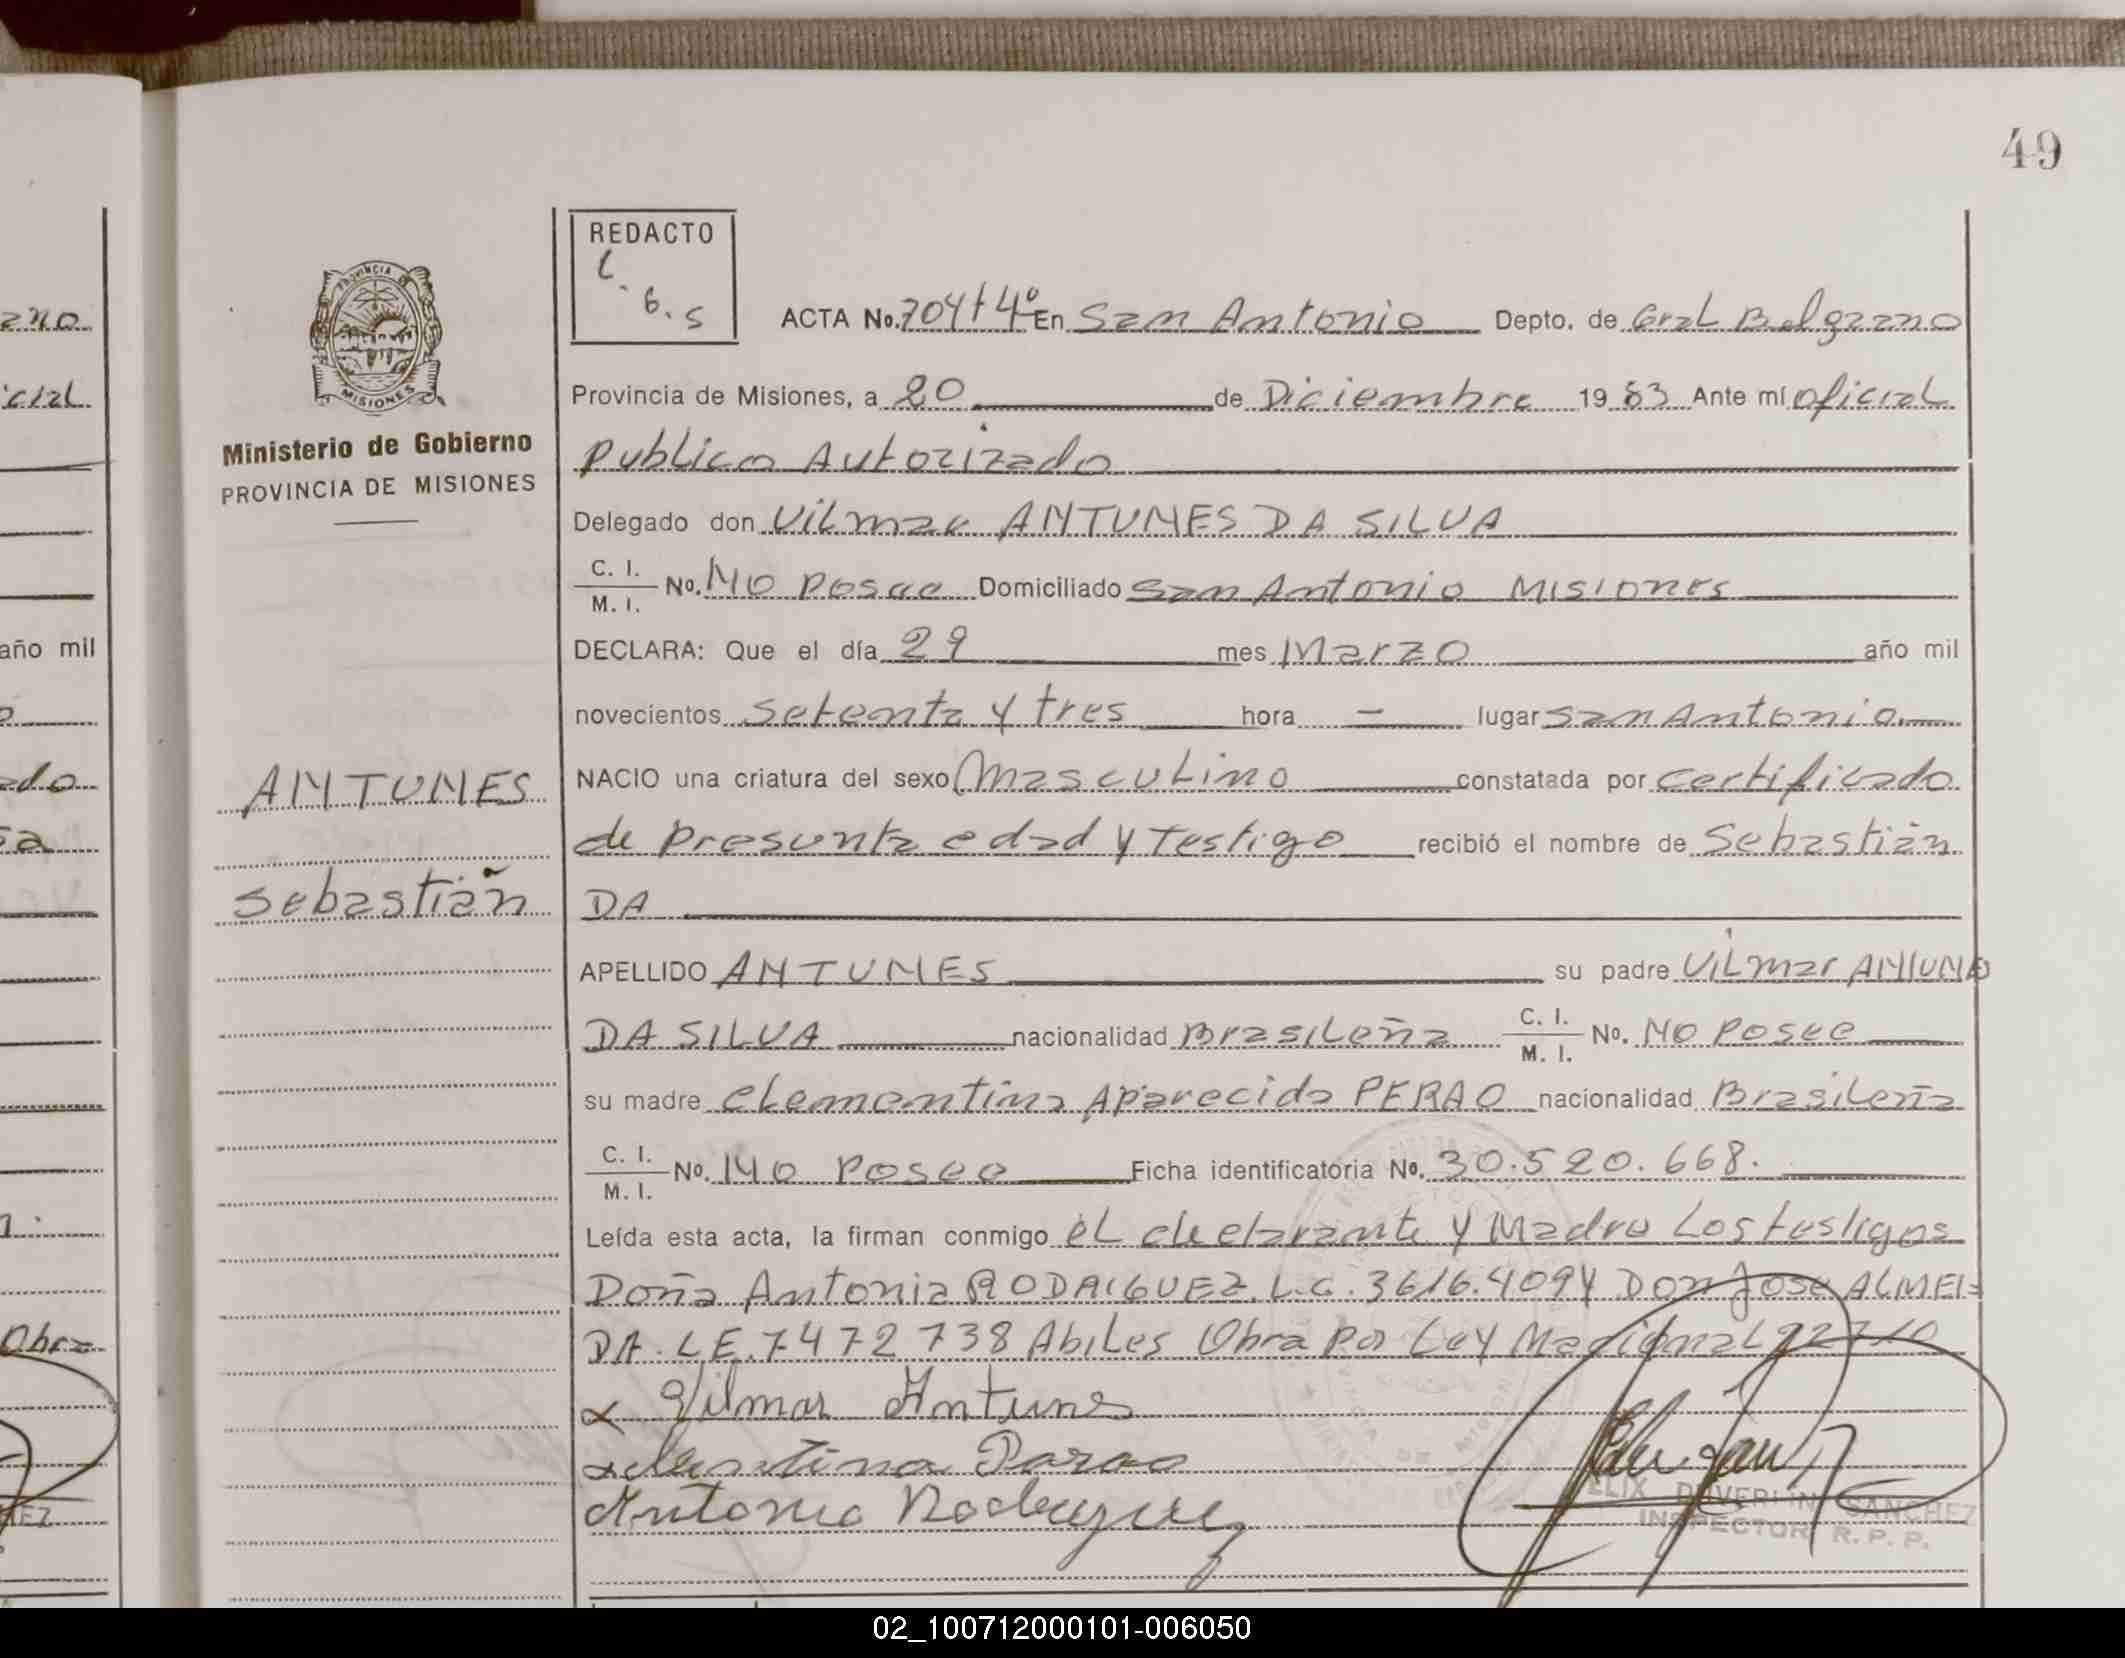 49
REDACTO
L.
6.S
ACTA No. 704 t 4º En San Antonio Depto. de Gral Belgrano
Provincia de Misiones, a 20 de Diciembre 1983 Ante mí oficial
Publico Autorizado
Delegado don Vilmar ANTUNES DA SILVA
C. I.
M. I. No. No Posee Domiciliado San Antonio MISIONES
DECLARA: Que el día 29 mes Marzo año mil
novecientos setenta y tres hora — lugar San Antonio
NACIO una criatura del sexo Masculino constatada por certificado
de Presunta edad y Testigo recibió el nombre de Sebastián
DA
APELLIDO ANTUNES su padre Vilmar ANTUNES
DA SILVA nacionalidad Brasileña C. I.
M. I. No. No Posee
su madre Clementina Aparecida PERAO nacionalidad Brasileña
C. I.
M. I. No. No Posee Ficha identificatoria No. 30.520.668.
Leída esta acta, la firman conmigo el declarante y Madre Los testigos
Doña Antonia RODRIGUEZ. L.C. 3616.409y Don Jose ALMEI=
DA. L.E. 7472738 Abiles Obra Por Ley Nacional 22710
x Vilmar Antunes
x Clementina Parao
Antonia Rodriguez
FELIX DUVERLIN SANCHEZ
INSPECTOR R. P. P.
PROVINCIA DE
MISIONES
Ministerio de Gobierno
PROVINCIA DE MISIONES
ANTUNES
Sebastián
ano
icial
año mil
ado
sa
Obra
EZ
02_100712000101-006050